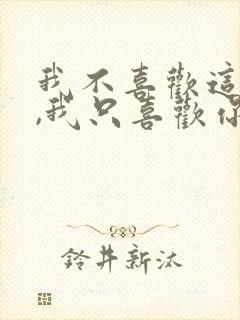 我不喜歡這
,我只喜歡你
鈴井新汰